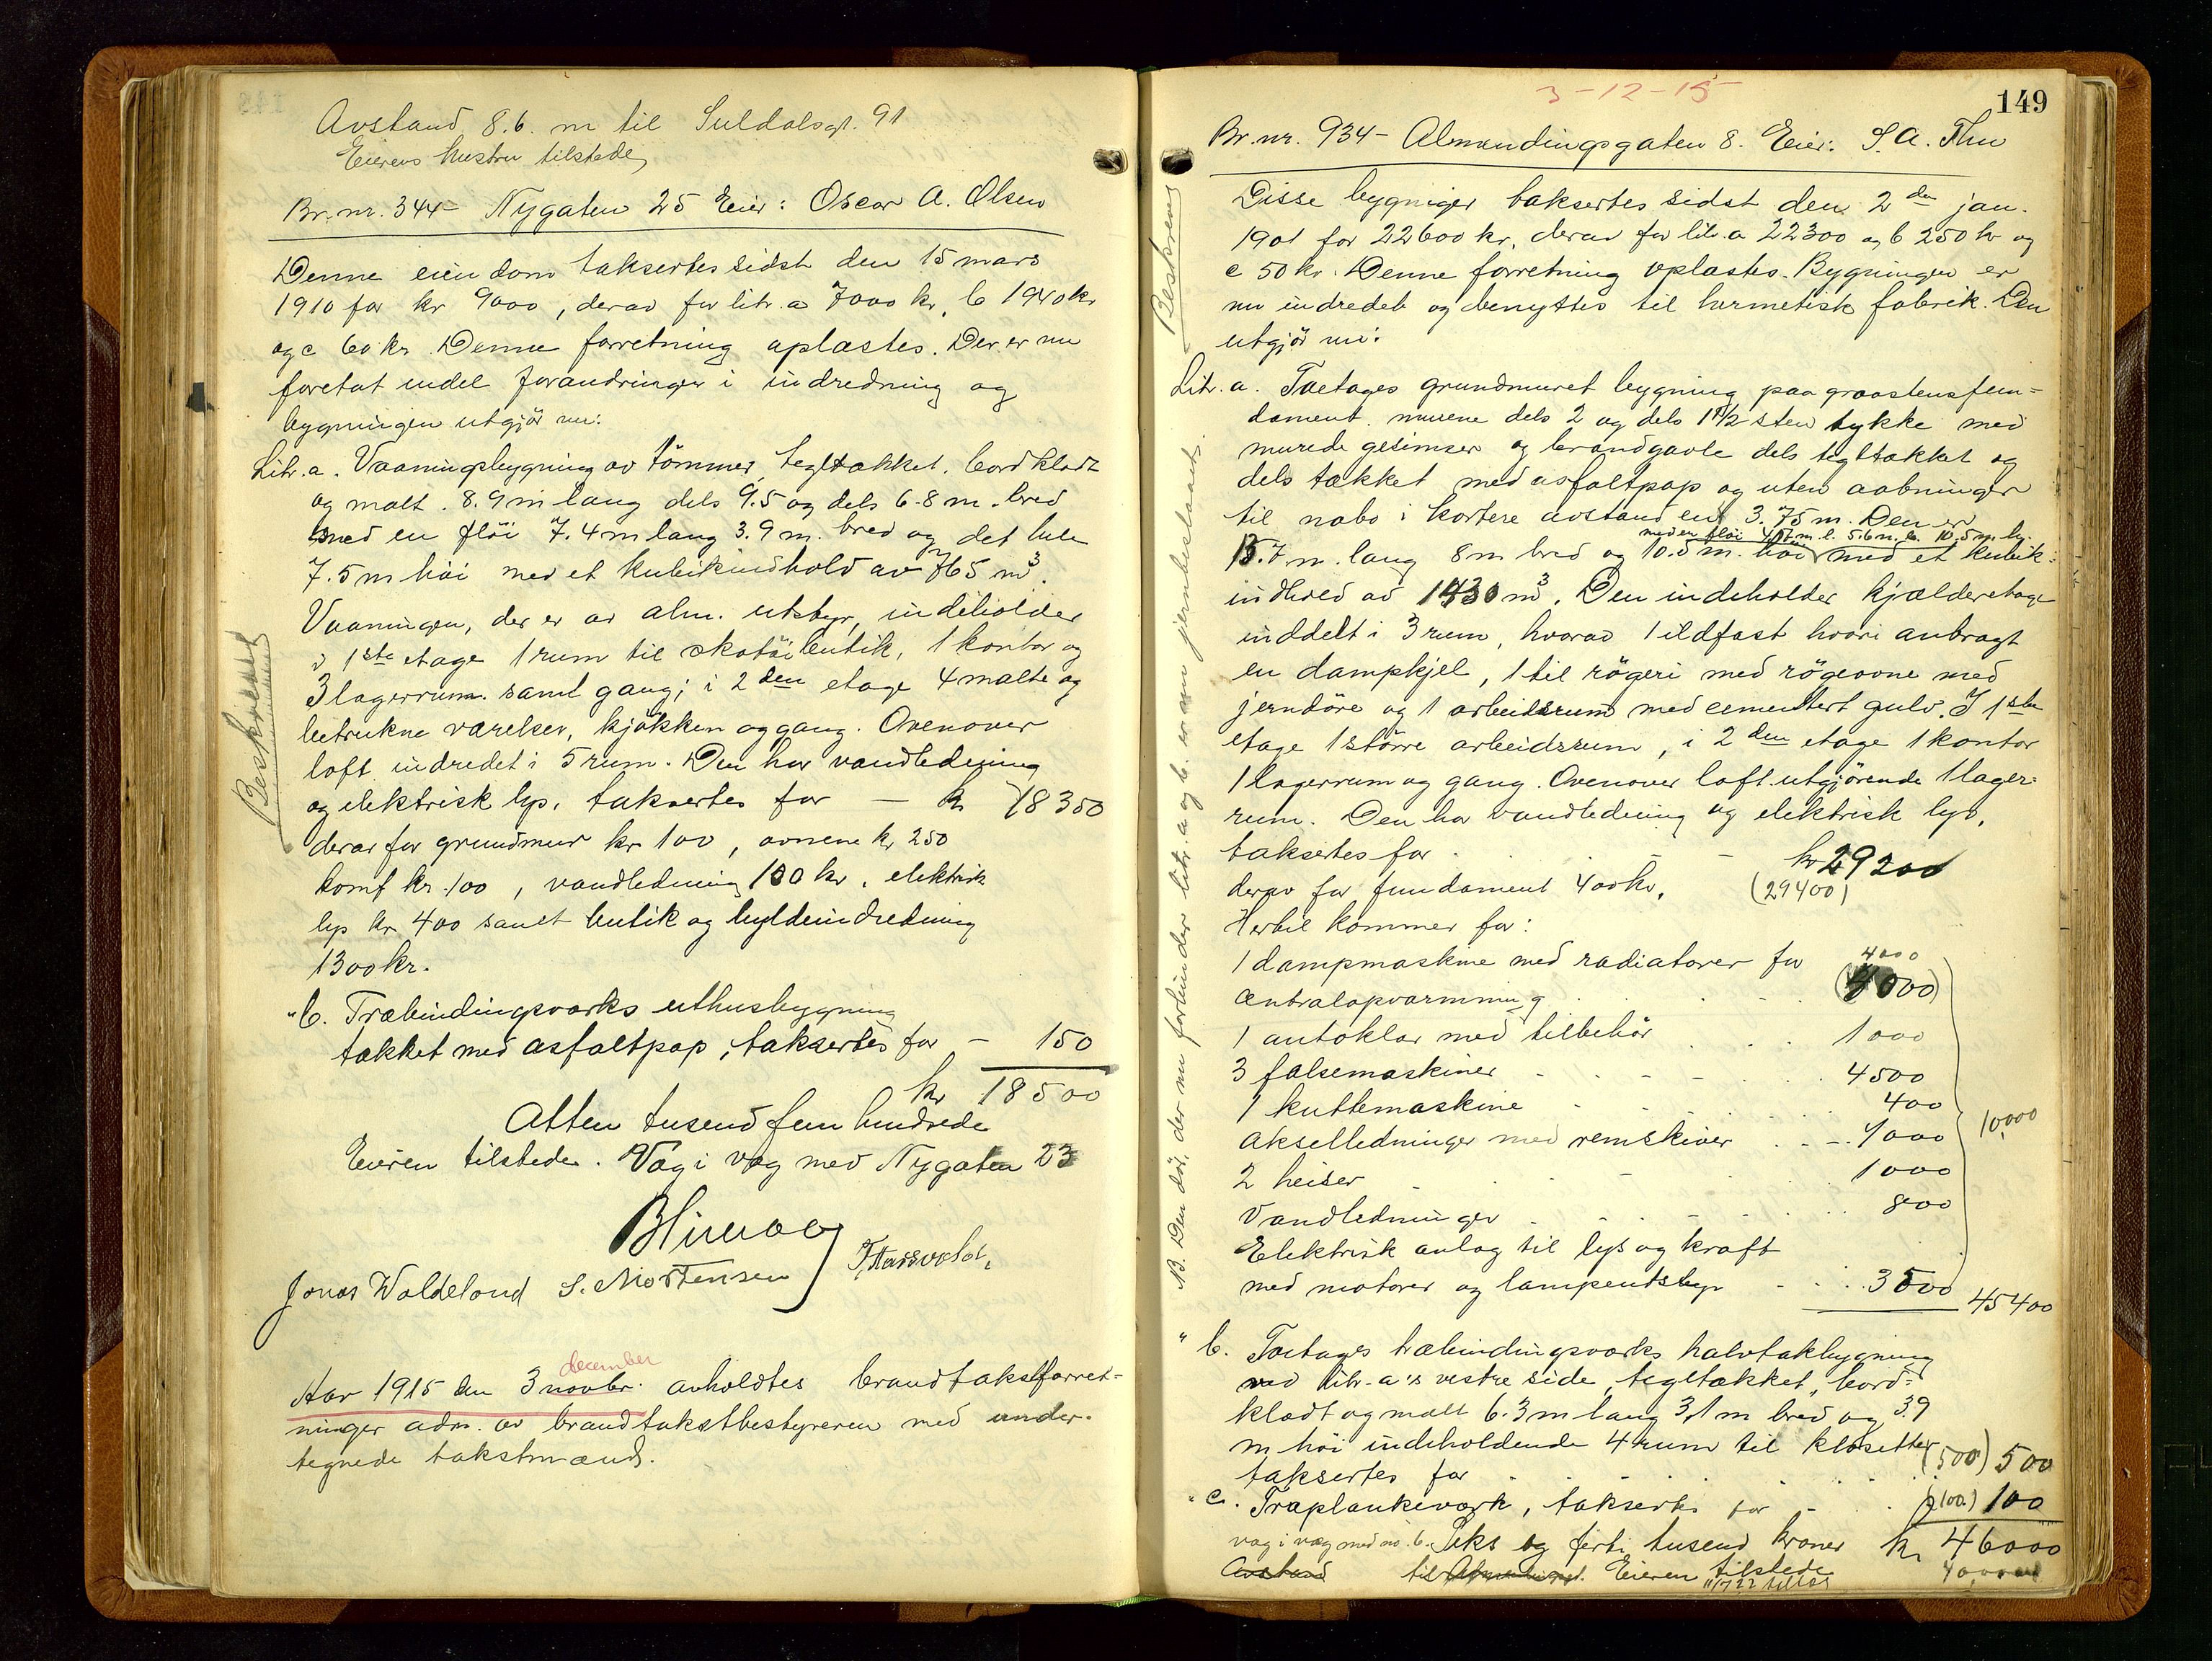 Avstand 8.6. m til Suldalsgt. 91
Eierens hustru tilstede
Br. nr. 344 - Nygaten 25 Eier: Oscar A. Olsen
Denne eiendom taksertes sidst den 15 mars
1910 for kr 9000, derav for litr. a 7000 kr, b 1940 kr
og c 60 kr. Denne forretning oplæstes. Der er nu
foretat endel forandringer i indredning og
bygningen utgjör nu:
Litr. a. Vaaningsbygning av tömmer, tegltækket, bordklædt
og malt. 8.9 m lang dels 9.5 og dels 6.8 m. bred
med en flöi 7.4 m lang 3.9 m. bred og det hele
7.5 m höi med et kubikindhold av 765 m³.
Vaaningen, der er av alm. utstyr, indeholder
i 1ste etage 1 rum til skotöibutik, 1 kontor og
3 lagerrum samt gang; i 2den etage 4 malte og
betrukne værelser, kjökken og gang. Ovenover
loft indredet i 5 rum. Den har vandledning
og elektrisk lys, taksertes for — kr 18350
derav for grundmur kr 100, ovnene kr 250
komf kr. 100, vandledning 100 kr, elektrisk
lys kr 400 samt butik og hyldeindredning
1300 kr.
" b. Træbindingsværks uthusbygning
tækket med asfaltpap, taksertes for - 150
kr 18500
Atten tusend fem hundrede
Eieren tilstede. Væg i væg med Nygaten 23
Jonas Waldeland S. Mortensen
Beskrevet
december
Aar 1915 den 3 novbr. avholdtes brandtakstforret-
ninger adm. av brandtakstbestyreren med under-
tegnede takstmænd.
3-12-15
149
Br. nr. 934 - Almendingsgaten 8. Eier: S. A. Thu
Disse bygninger taksertes sidst den 2den jan.
1901 for 22600 kr, derav for litr. a 22300 og b 250 kr og
c 50 kr. Denne forretning oplæstes. Bygningen er
nu indredet og benyttes til hermetisk fabrik. Den
utgjör nu:
Litr. a. Toetages grundmuret bygning paa graastensfun-
dament. murene dels 2 og dels 1 1/2 sten tykke med
murede gesimser og brandgavle dels tegltækket og
dels tækket med asfaltpap og uten aabninger
til nabo i kortere avstand end 3.75 m. Den er
med en flöi m. l. 5.6 m. b. 10.5 m. h.
15.7 m. lang 8 m bred og 10.5 m. höi med et kubik-
indhold av 1430 m³. Den indeholder kjælderetage
inddelt i 3 rum, hvorav 1 ildfast hvori anbragt
en dampkjel, 1 til rögeri med rögeovne med
jerndöre og 1 arbeidsrum med cementert gulv. I 1ste
etage 1 större arbeidsrum, i 2den etage 1 kontor
1 lagerrum og gang. Ovenover loft utgjörende 1 lager-
rum. Den har vandledning og elektrisk lys,
taksertes for - - kr 29200
derav for fundament 400 kr. (29400)
Hertil kommer for:
1 dampmaskine med radiatorer for 4000
centralopvarmning (4000)
1 autoklav med tilbehör 1000
3 falsemaskiner 4500
1 kuttemaskine 400
Akselledninger med remskiver 1000
10,000
2 heiser 1000
Vandledninger 800
Elektrisk anlæg til lys og kraft
med motorer og lampeutstyr 3500
45400
" b. Toetages træbindingsværks halvtakbygning
ved litr. a's vestre side, tegltækket, bord-
klædt og malt 6.3 m lang 3.1 m bred og 3.9
m höi indeholdende 4 rum til klosetter
taksertes for (500) 500
" c. Træplankeværk, taksertes for (100) 100
væg i væg med no. 6. Seks og förti tusend kroner kr 46000
Avstand til Almendingsgt. Eieren tilstede
Beskrevet
NB. Den dör, der nu forbinder litr. a og b. er en jernbeslaat.